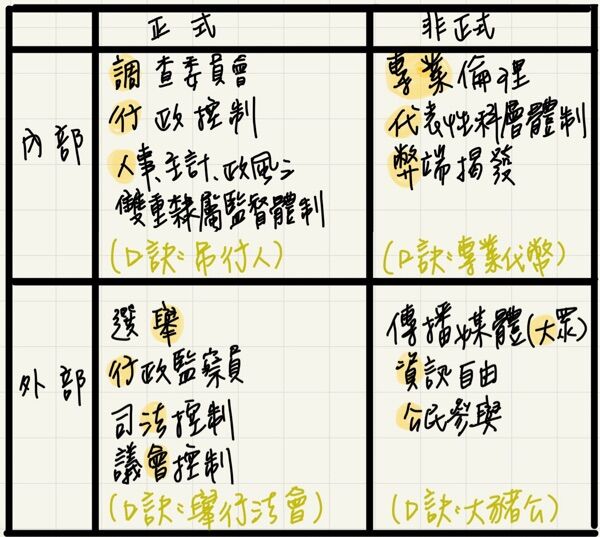 正式
非正式
內部
調查委員會
行政控制
人事、主計、政風:
雙重隸屬監督體制
(口訣:吊行人)
專業倫理
代表性科層體制
弊端揭發
(口訣:專業代幣)
外部
選舉
行政監察員
司法控制
議會控制
(口訣:舉行法會)
傳播媒體(大眾)
資訊自由
公民參與
(口訣:大豬公)